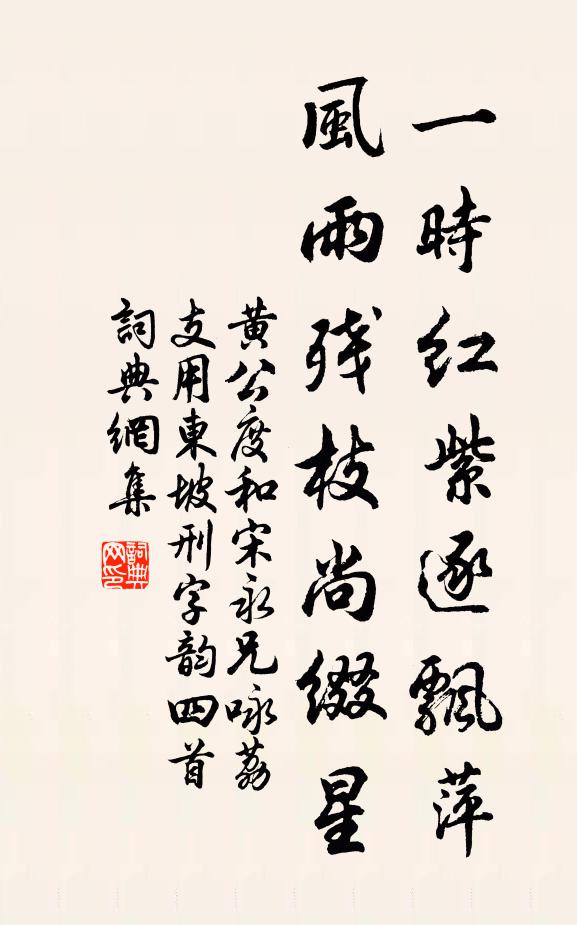 一時紅紫逐飄萍
風雨殘枝尚綴星
黄公度和宋永兄咏荔
支用東坡刑字韵四首
詞典網集
詞典網印